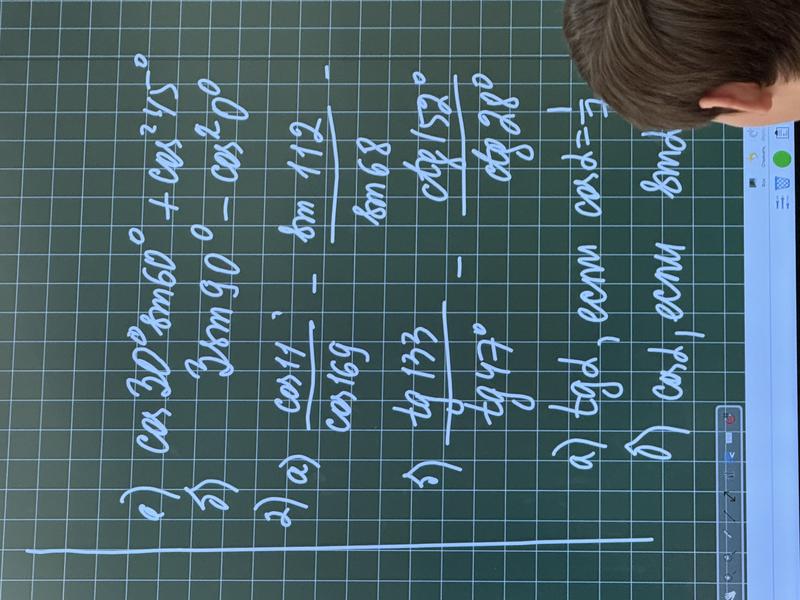 а) cos 30° sin 60° + cos² 45°
б) 3 sin 90° - cos² 0°
2) а) cos 11° / cos 169 - sin 112 / sin 68 -
б) tg 133 / tg 47° - ctg 152° / ctg 28°
а) tg α, если cos α = 1
б) cos α, если sin α